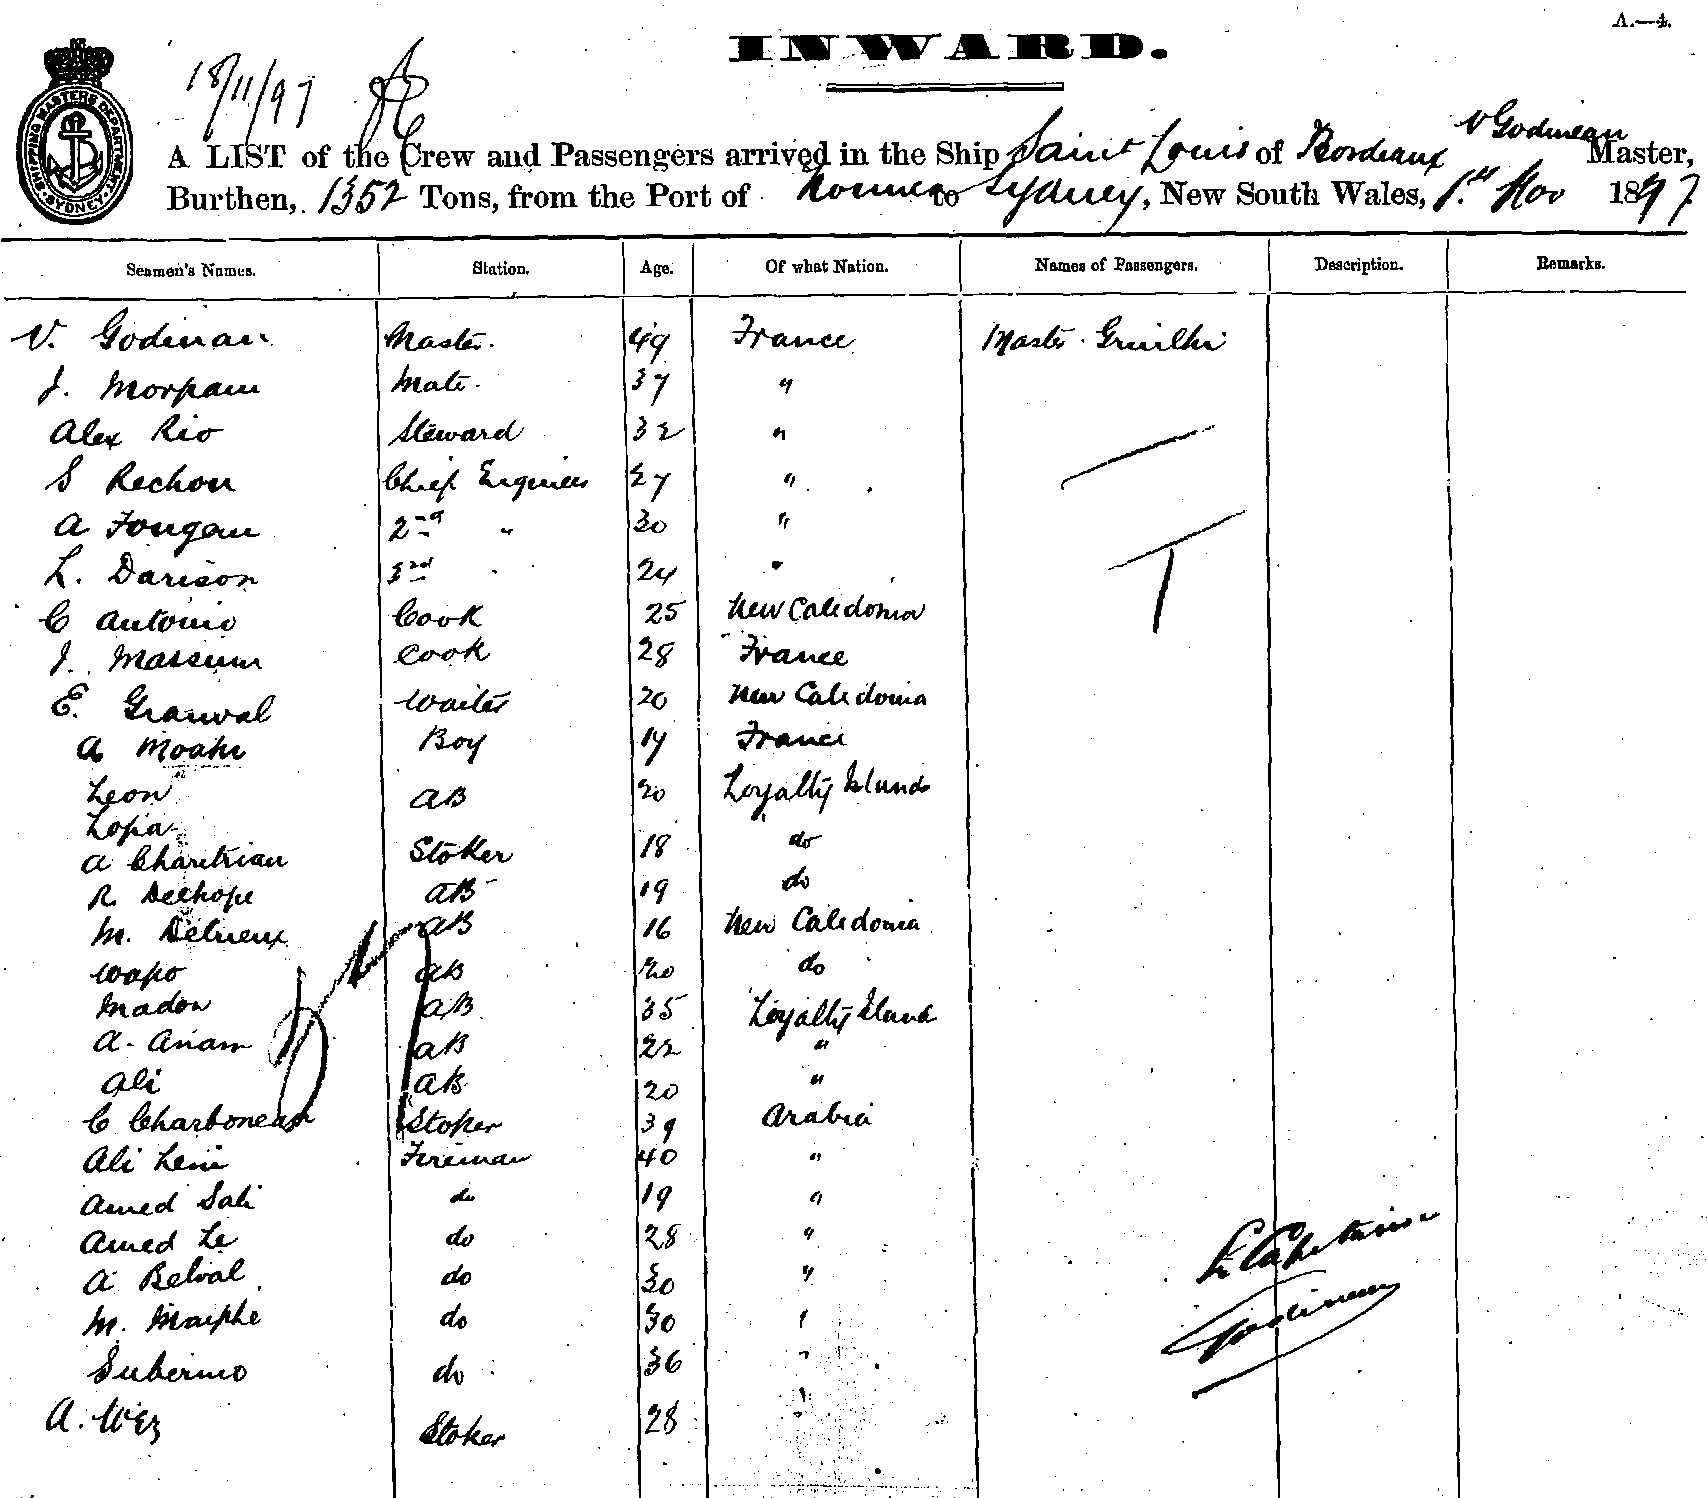 A.—4.
INWARD.
18/11/97
SHIPPING MASTERS DEPARTMENT SYDNEY
V Godineau
A LIST of the Crew and Passengers arrived in the Ship Saint Louis of Bordeaux Master,
Burthen, 1352 Tons, from the Port of Noumea to Sydney, New South Wales, 1st Nov 1897
Seamen's Names. Station. Age. Of what Nation. Names of Passengers. Description. Remarks.
V. Godinau Master. 49 France Master
J. Morpain Mate. 37 "
Alex Rio Steward 32 "
S Rechou Chief Engineer 27 "
A Fougeau 2nd " 30 "
L. Darison 3rd 24 "
C Antonio Cook 25 New Caledonia
J. Cook 28 France
E. Granval Waiter 20 New Caledonia
A Boy 17 France
Leon AB 20 Loyalty Islands
Lopa
A Stoker 18 do
R. AB 19 do
M. AB 16 New Caledonia
Wapo AB 20 do
Madou AB 35 Loyalty Island
A. Anam AB 22 "
Ali AB 20 "
C Charboneau Stoker 39 Arabia
Ali Fireman 40 "
Amed Sali do 19 "
Amed Le do 28 "
A Belval do 30 "
M. Marphe do 30 "
do 36 "
A. Stoker 28 "
Le Capitaine
Godineau